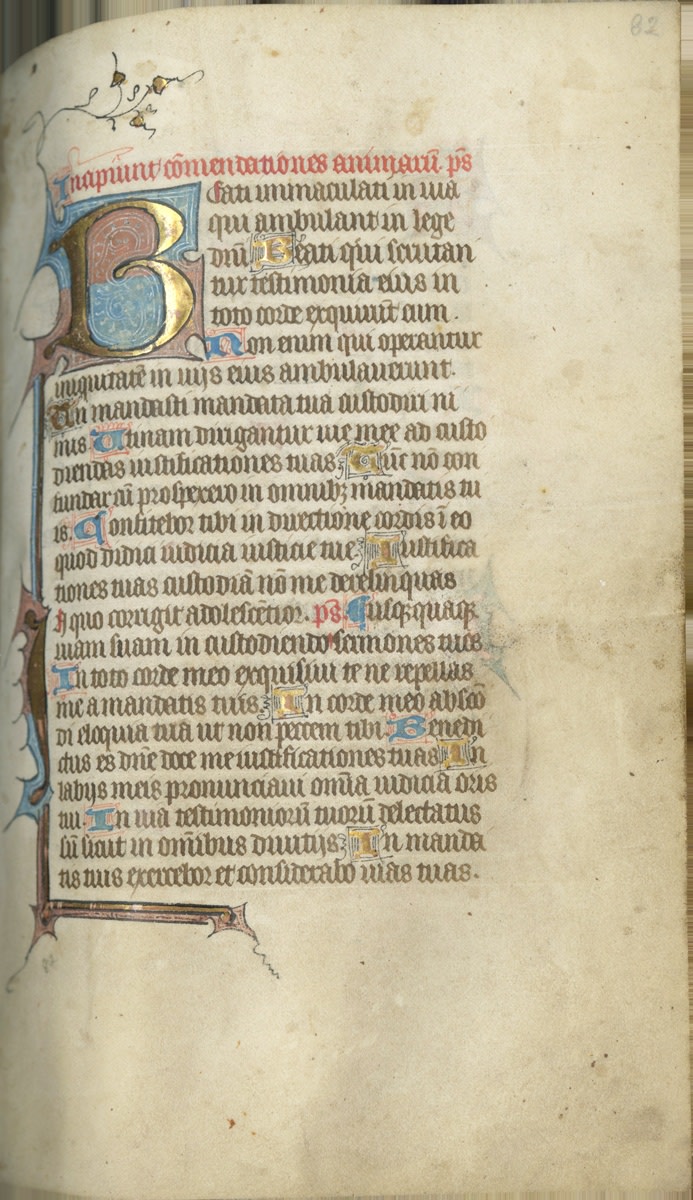 82
Incipiunt cōmendationes animarū. ps̄
Beati immaculati in uia
qui ambulant in lege
dn̄i Beati qui scrutan
tur testimonia eius in
toto corde exquirūt eum.
Non enim qui operantur
iniquitatē in uijs eius ambulauerunt.
Tu mandasti mandata tua custodiri ni
mis Utinam dirigantur uie mee ad custo
diendas iustificationes tuas; Tūc nō con
fundar cū prospexero in omnibꝫ mandatis tu
is. Confitebor tibi in directione cordis ī eo
quod didici iudicia iusticie tue; Iustifica
tiones tuas custodiā nō me derelinquas
In quo corrigit adolescētior. ps̄. usqꝫ quaqꝫ
uiam suam in custodiendo sermones tuos
In toto corde meo exquisiui te ne repellas
me a mandatis tuis; In corde meo abscō
di eloquia tua ut non peccem tibi. Benedi
ctus es dn̄e doce me iustificationes tuas In
labijs meis pronunciaui om̄ia iudicia oris
tui. In uia testimoniorū tuorū delectatus
sū sicut in om̄ibus diuitijs; In manda
tis tuis exercebor et considerabo uias tuas.